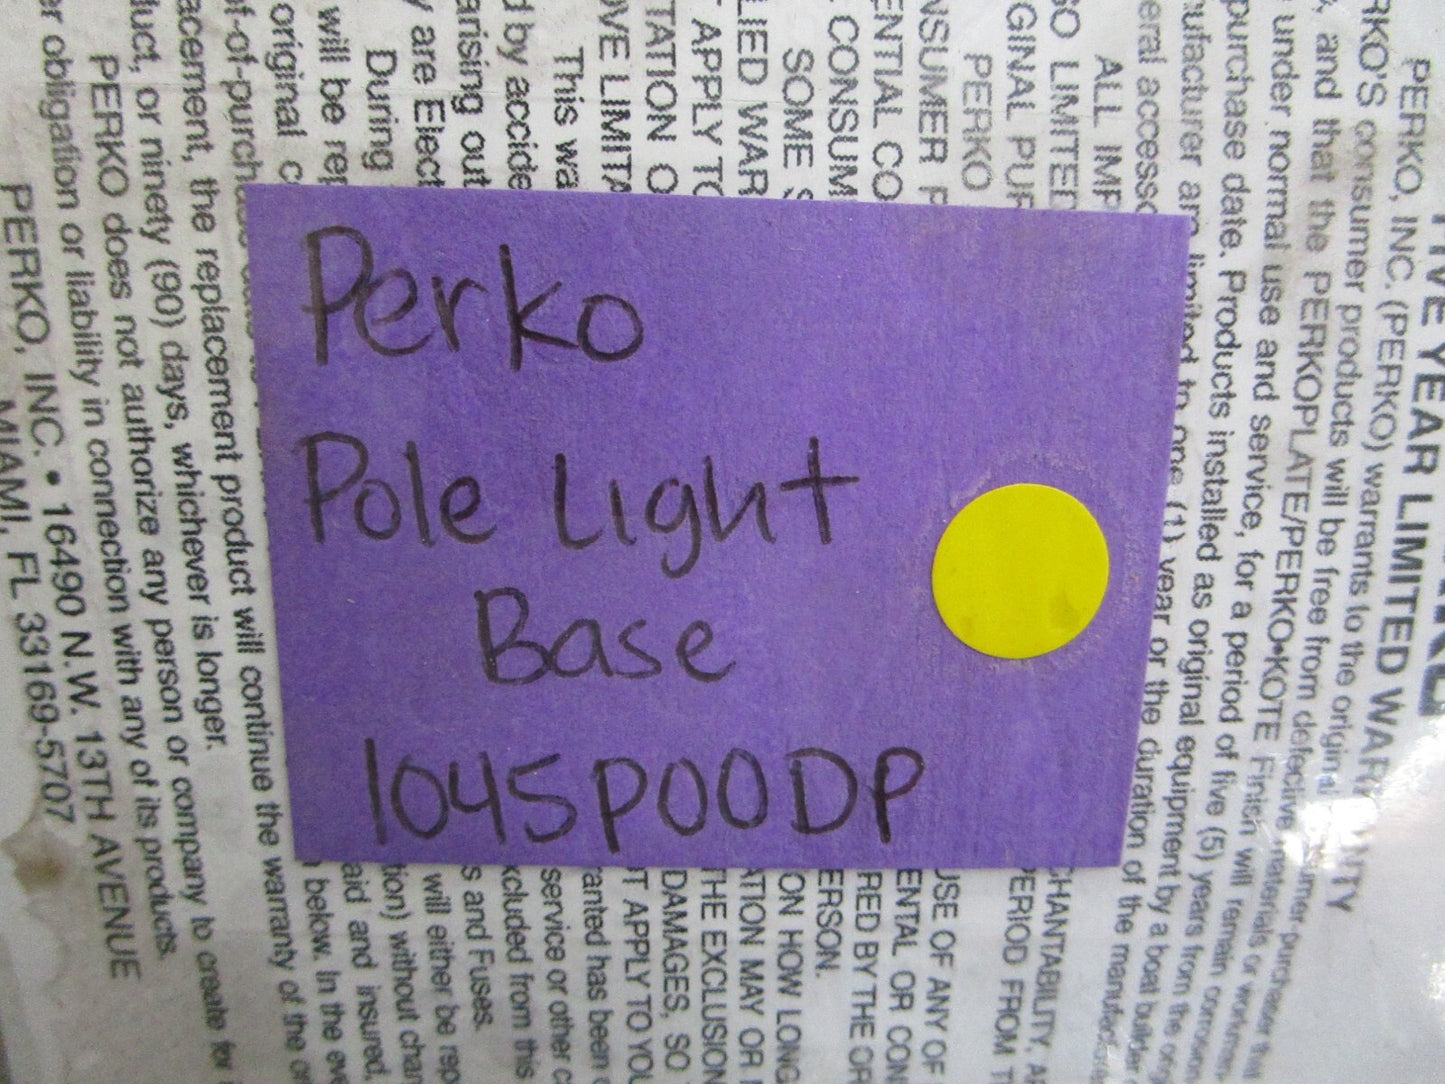 Perko
Pole Light
Base
1045P00DP
FIVE YEAR LIMITED WARRANTY
PERKO, INC. (PERKO) warrants to the original
PERKO'S consumer products will be free from defective materials or workman
and that the PERKOPLATE/PERKO•KOTE Finish will remain corrosion
under normal use and service, for a period of five (5) years from the orig
purchase date. Products installed as original equipment by a boat builder
limited to one (1) year or the duration of the manufacturer
ALL IMP
CHANTABILITY, A
SO LIMITED
PERIOD FROM T
GINAL PUR
PERKO
USE OF ANY OF
NSUMER P
ENTAL OR CON
ENTIAL CO
RED BY THE OR
CONSUM
ERSON.
SOME S
ON HOW LONG
LIED WAR
ATION MAY OR
APPLY TO
THE EXCLUSION
TATION O
DAMAGES, SO
OVE LIMITA
OT APPLY TO YOU
This wa
anted has been
d by accide
service or other c
arising out
xcluded from this
are Elect
s and Fuses.
During
will either be rep
will be rep
tion) without char
original c
aid and insured.
of-of-purch
below. In the eve
acement, the replacement product will continue the warranty of the or
duct, or ninety (90) days, whichever is longer.
PERKO does not authorize any person or company to create for
er obligation or liability in connection with any of its products.
PERKO, INC. • 16490 N.W. 13TH AVENUE
MIAMI, FL 33169-5707